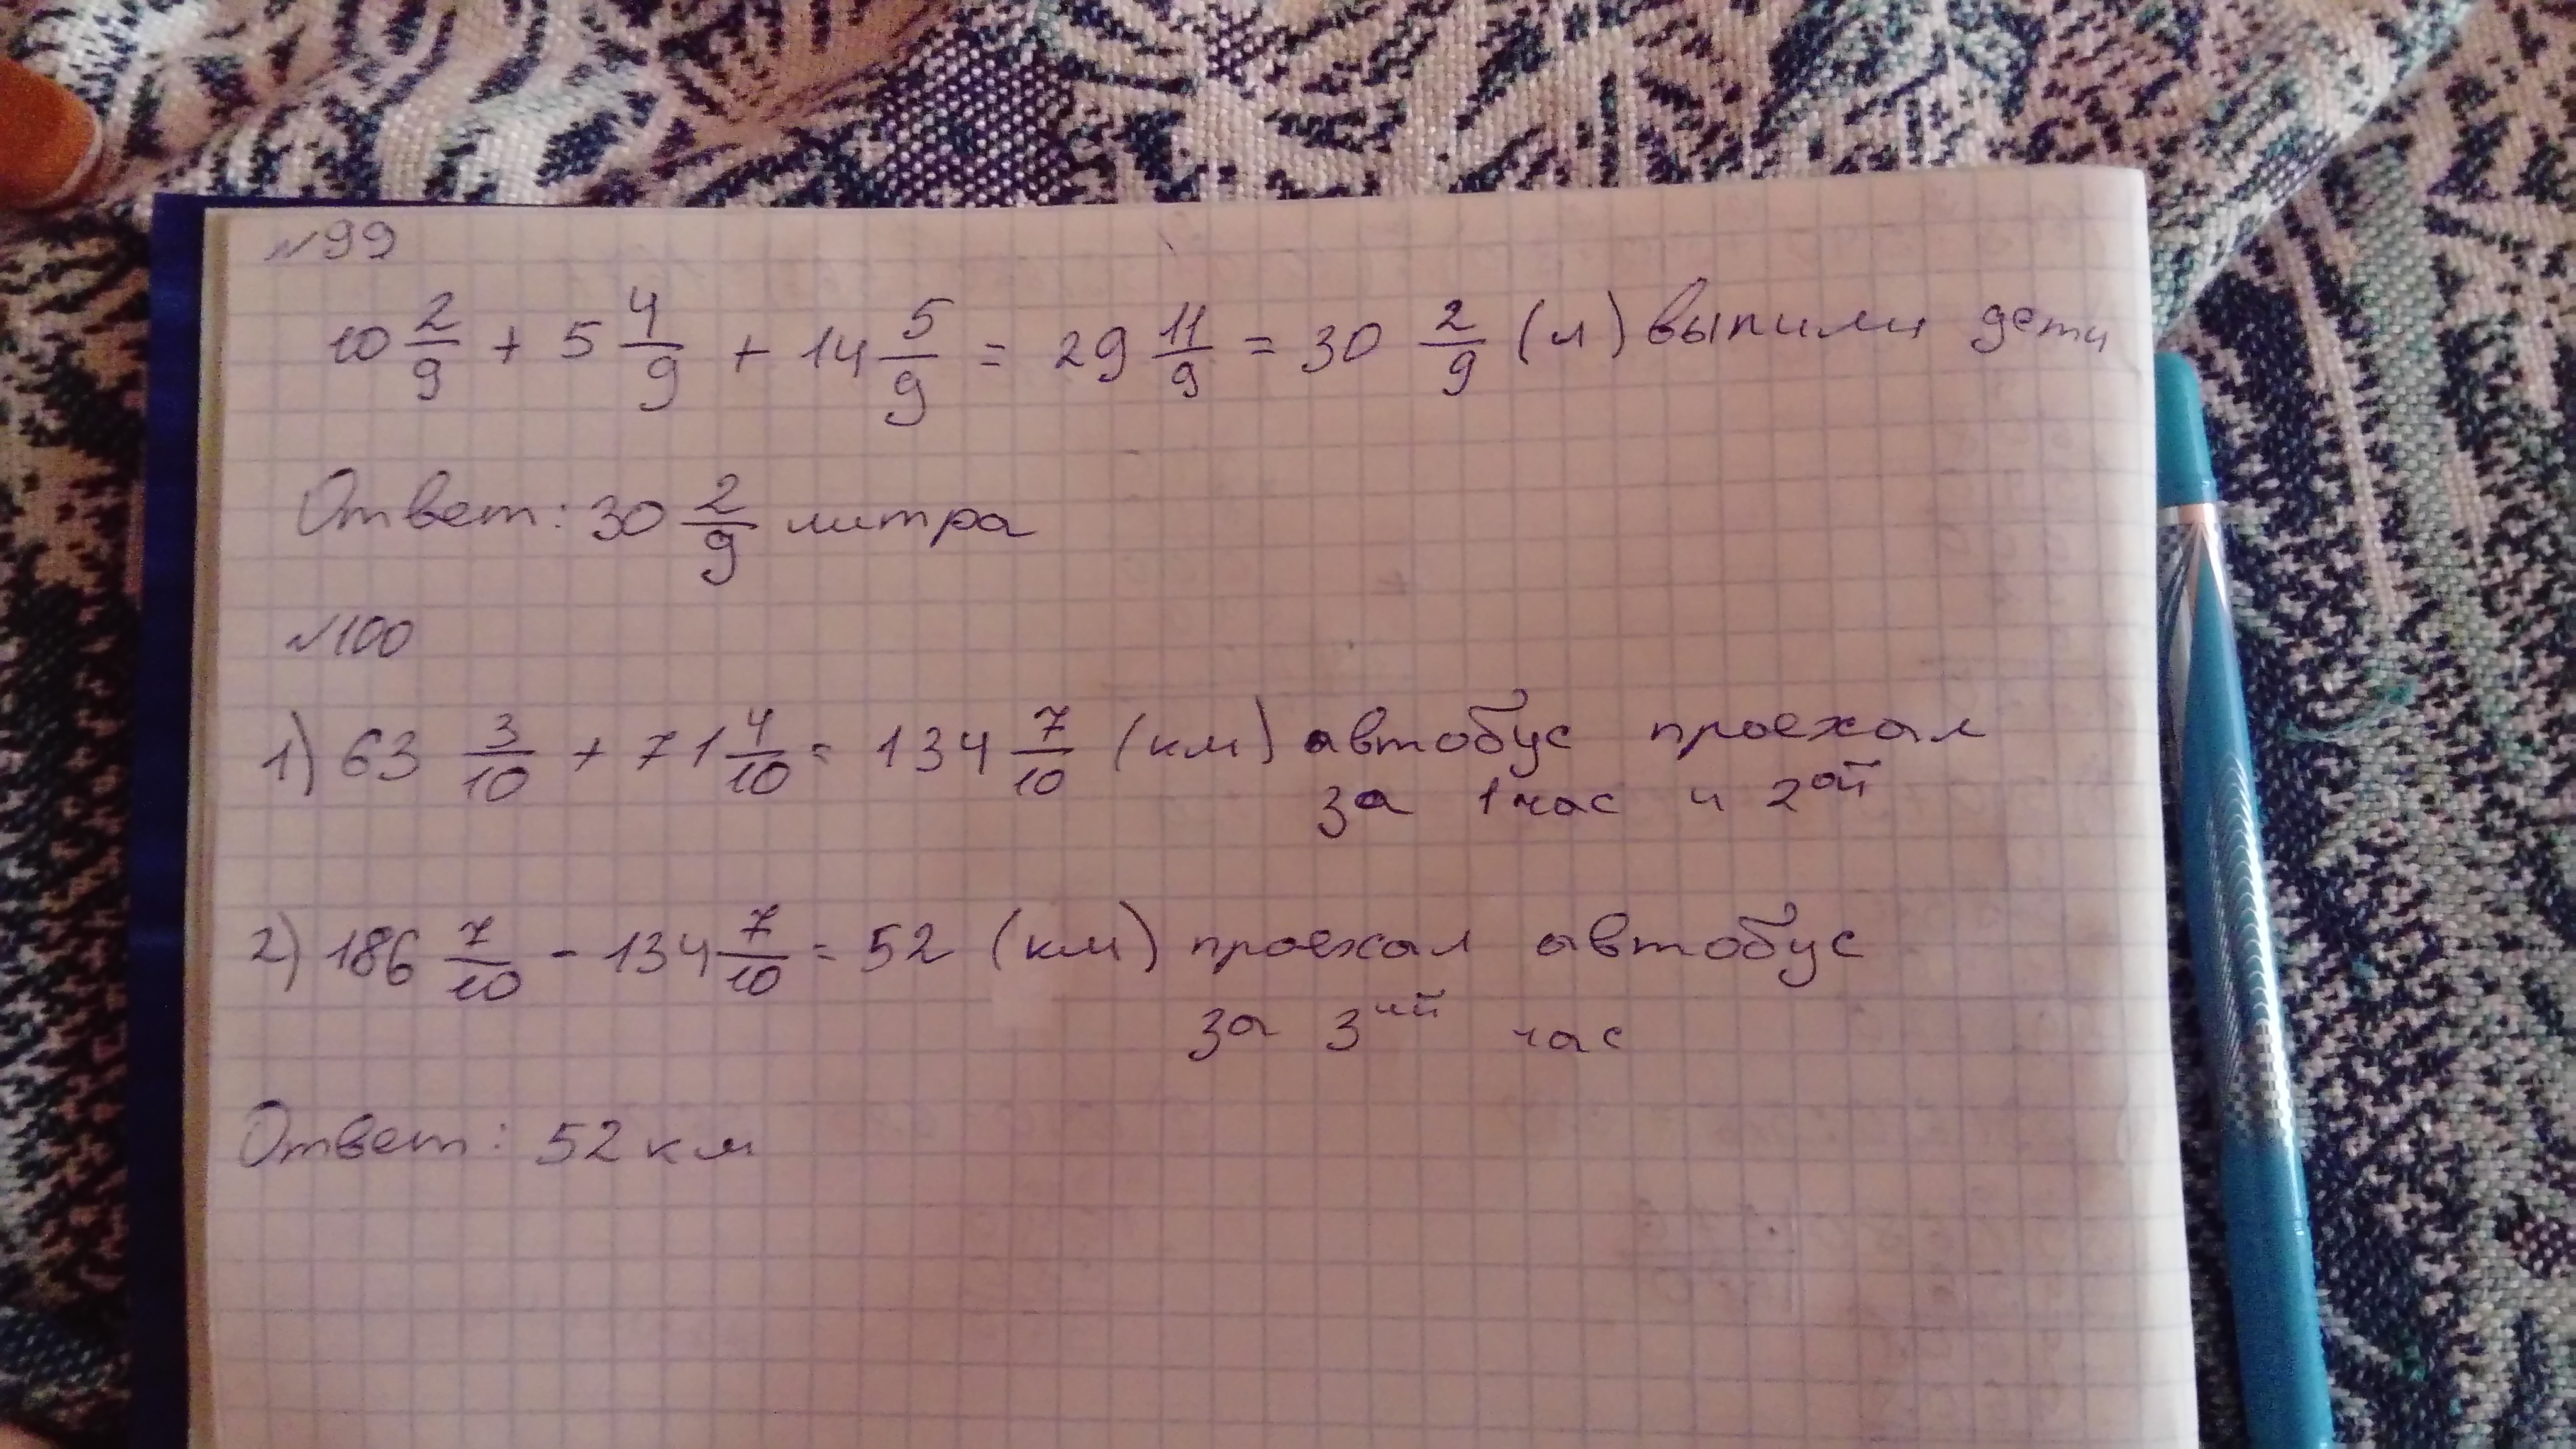 №99
10 2/9 + 5 4/9 + 14 5/9 = 29 11/9 = 30 2/9 (л) выпили дети
Ответ: 30 2/9 литра
№100
1) 63 3/10 + 71 4/10 = 134 7/10 (км) автобус проехал
за 1 час и 2ой
2) 186 7/10 - 134 7/10 = 52 (км) проехал автобус
за 3ий час
Ответ: 52 км